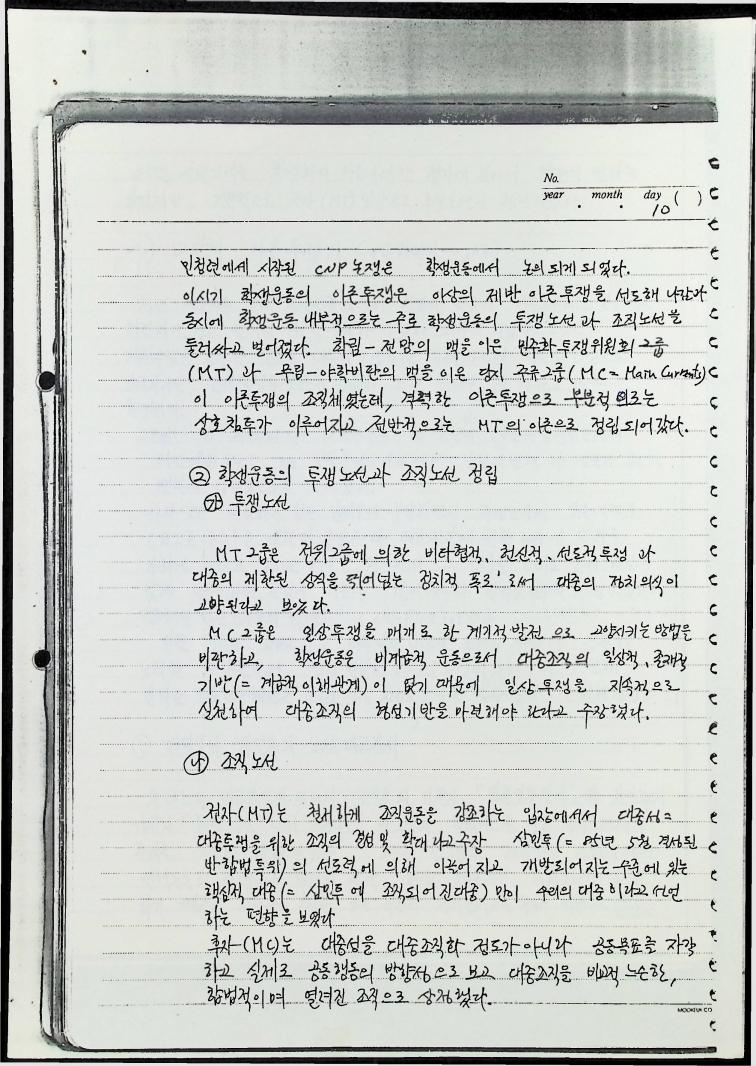 No.
year . month . day ( )
10
민청련에서 시작된 CNP 논쟁은 학생운동에서 논의 되게 되었다.
이시기 학생운동의 이론투쟁은 이상의 제반 이론투쟁을 선도해 나감과
동시에 학생운동 내부적으로는 주로 학생운동의 투쟁노선과 조직노선을
둘러싸고 벌어졌다. 학림-전망의 맥을 이은 민주화투쟁위원회 그룹
(MT)과 무림-야학비판의 맥을 이은 당시 주류그룹(MC = Main Currents)
이 이론투쟁의 조직체였는데, 격력한 이론투쟁으로 부분적으로는
상호침투가 이루어지고 전반적으로는 MT의 이론으로 정립되어갔다.
② 학생운동의 투쟁노선과 조직노선 정립
㉮ 투쟁노선
MT그룹은 전위그룹에 의한 비타협적, 헌신적, 선도적투쟁과
대중의 제한된 상식을 뛰어넘는 정치적 폭로'로써 대중의 정치의식이
고양된다고 보았다.
MC그룹은 일상투쟁을 매개로 한 계기적 발전으로 고양시키는 방법을
비판하고, 학생운동은 비계급적 운동으로서 대중조직의 일상적, 존재적
기반(= 계급적 이해관계)이 없기 때문에 일상투쟁을 지속적으로
실천하여 대중조직의 형성기반을 마련해야 한다고 주장했다.
㉯ 조직노선
전자(MT)는 철저하게 조직운동을 강조하는 입장에서서 대중성=
대중투쟁을 위한 조직의 결성 및 확대 라고주장 삼민투(= 85년 5월 결성된
반합법특위)의 선도력에 의해 이끌어 지고 개발되어지는 수준에 있는
핵심적 대중(= 삼민투에 조직되어진대중)만이 우리의 대중이라고 선언
하는 편향을 보였다
후자(MC)는 대중성을 대중조직화 정도가 아니라 공동목표를 자각
하고 실제로 공동행동의 방향성으로 보고 대중조직을 비교적 느슨한,
합법적이며 열려진 조직으로 상정했다.
MOOKEUK CO